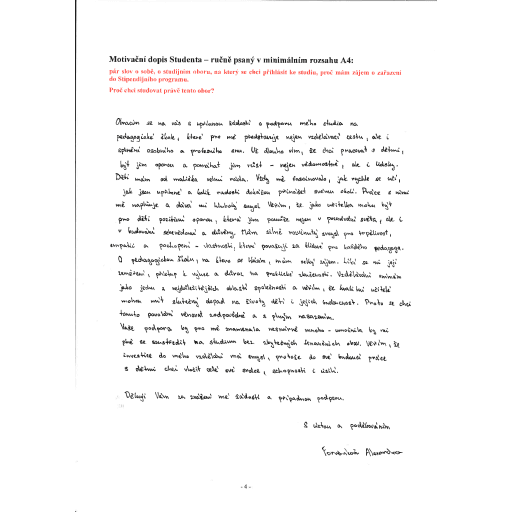 Motivační dopis Studenta – ručně psaný v minimálním rozsahu A4:
pár slov o sobě, o studijním oboru, na který se chci přihlásit ke studiu, proč mám zájem o zařazení
do Stipendijního programu.
Proč chci studovat právě tento obor?
Obracím se na vás s upřímnou žádostí o podporu mého studia na
pedagogické škole, které pro mě představuje nejen vzdělávací cestu, ale i
splnění osobního a profesního snu. Už dlouho vím, že chci pracovat s dětmi,
být jim oporou a pomáhat jim růst – nejen vědomostně, ale i lidsky.
Děti mám od malička velmi ráda. Vždy mě fascinovalo, jak rychle se učí,
jak jsou upřímné a kolik radosti dokážou přinášet svému okolí. Práce s nimi
mě naplňuje a dává mi hluboký smysl. Věřím, že jako učitelka mohu být
pro děti pozitivní oporou, která jim pomůže nejen v poznávání světa, ale i
v budování sebevědomí a důvěry. Mám silně rozvinutý smysl pro trpělivost,
empatii a pochopení – vlastnosti, které považuji za klíčové pro každého pedagoga.
O pedagogickou školu, na kterou se hlásím, mám velký zájem. Líbí se mi její
zaměření, přístup k výuce a důraz na praktické zkušenosti. Vzdělávání vnímám
jako jednu z nejdůležitějších oblastí společnosti a věřím, že kvalitní učitelé
mohou mít skutečný dopad na životy dětí i jejich budoucnost. Proto se chci
tomuto povolání věnovat zodpovědně a s plným nasazením.
Vaše podpora by pro mě znamenala nesmírně mnoho – umožnila by mi
plně se soustředit na studium bez zbytečných finančních obav. Věřím, že
investice do mého vzdělání má smysl, protože do své budoucí práce
s dětmi chci vložit celé své srdce, schopnosti i úsilí.
Děkuji Vám za zvážení mé žádosti a případnou podporu.
S úctou a poděkováním
Alexandra
- 4 -